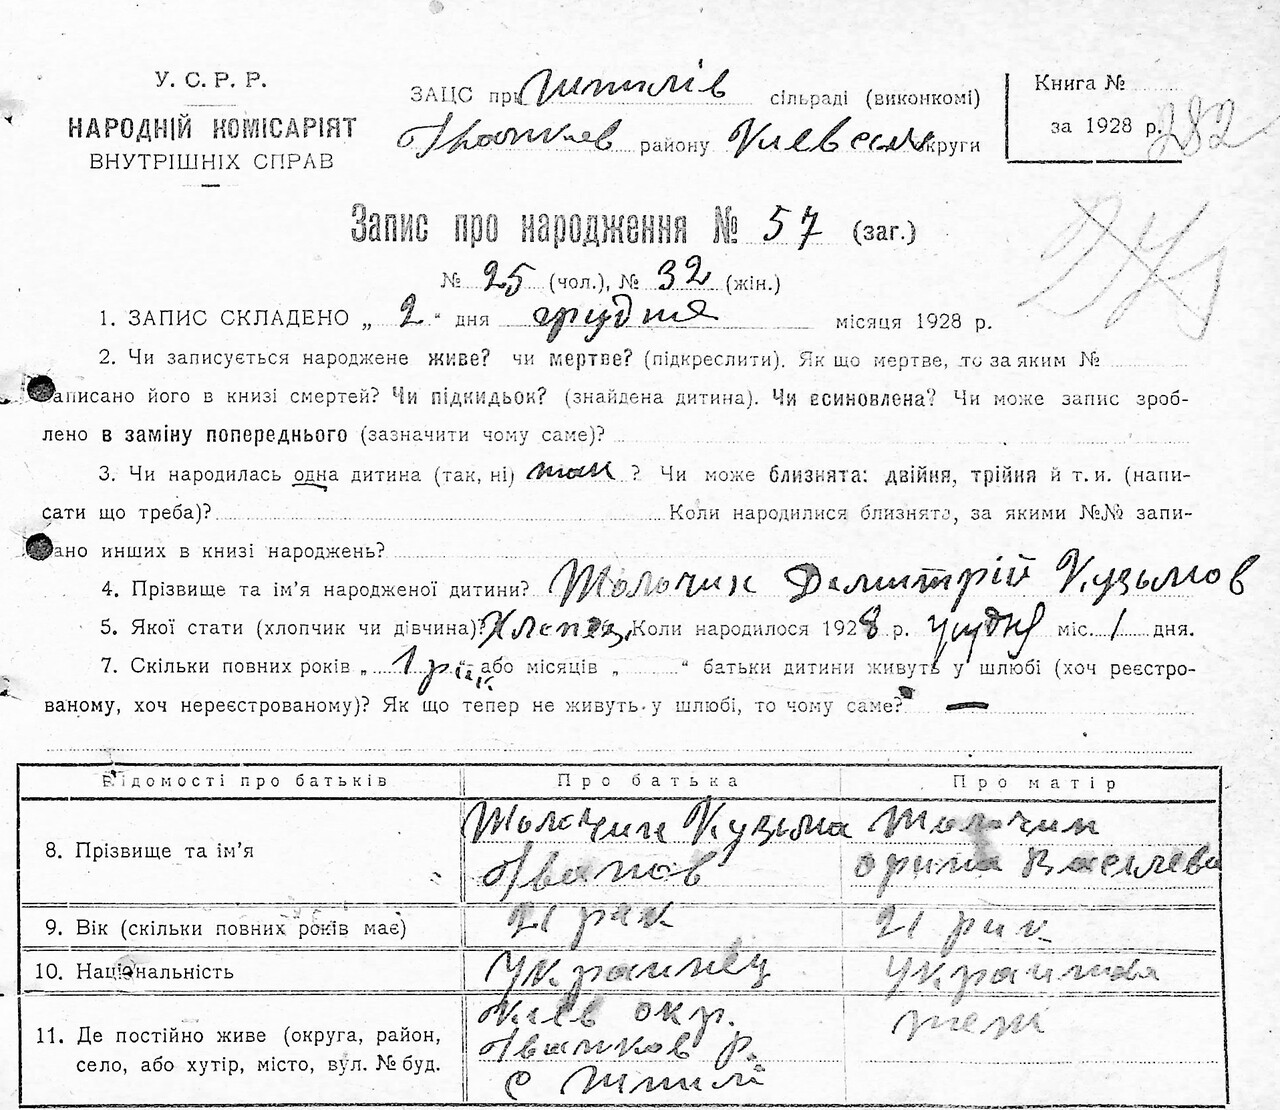 У. С. Р. Р.
НАРОДНІЙ КОМІСАРІЯТ
ВНУТРІШНІХ СПРАВ
ЗАЦС при Шпилів сільраді (виконкомі)
району Киевськ округи
Книга №
за 1928 р. 282
Запис про народження № 57 (заг.)
№ 25 (чол.), № 32 (жін.)
1. ЗАПИС СКЛАДЕНО „ 2 “ дня грудня місяця 1928 р.
2. Чи записується народжене живе? чи мертве? (підкреслити). Як що мертве, то за яким №
записано його в книзі смертей? Чи підкидьок? (знайдена дитина). Чи всиновлена? Чи може запис зроб-
лено в заміну попереднього (зазначити чому саме)?
3. Чи народилась одна дитина (так, ні) так ? Чи може близнята: двійня, трійня й т. и. (напи-
сати що треба)? Коли народилися близнята, за якими №№ запи-
сано инших в книзі народжень?
4. Прізвище та ім’я народженої дитини? Толочик Демитрій Кузьмов
5. Якої стати (хлопчик чи дівчина)? Хлопец Коли народилося 1928 р. грудня міс. 1 дня.
7. Скільки повних років „ 1 рік “ або місяців „ “ батьки дитини живуть у шлюбі (хоч реєстро-
ваному, хоч нереєстрованому)? Як що тепер не живуть у шлюбі, то чому саме? —
Відомості про батьків Про батька Про матір
8. Прізвище та ім’я Толочик Кузьма Иванов Толочик Орина Василева
9. Вік (скільки повних років має) 21 рік 21 рик
10. Національність Украинец Украинка
11. Де постійно живе (округа, район,
село, або хутір, місто, вул. № буд.
Киев окр.
Иванков р.
с Шпилі
теж